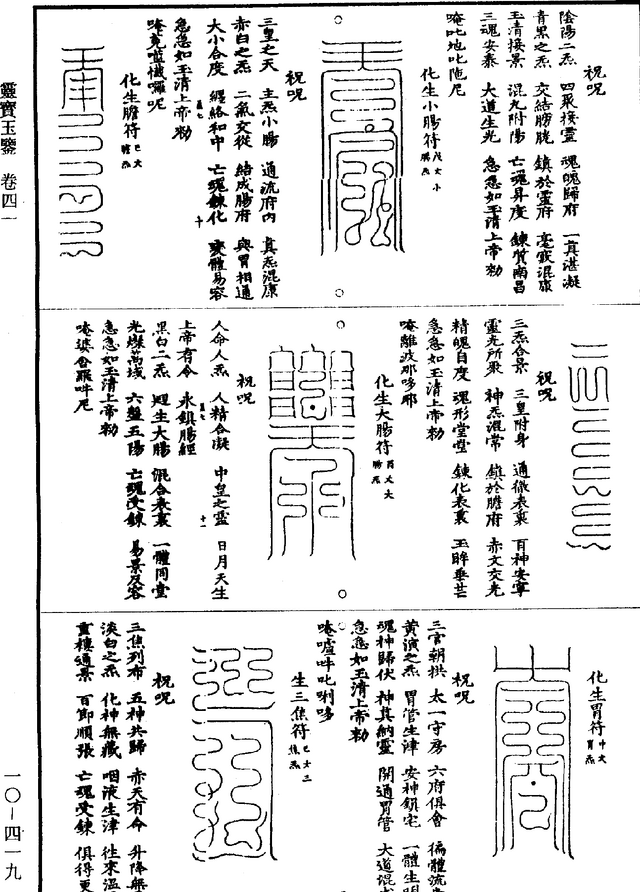 祝呪
陰陽二炁　四眾接靈　魂魄歸府　一真湛凝
青黑之炁　交結膀胱　鎮於靈府　毫竅混康
玉清接景　混九附陽　亡魂昇度　鍊質南昌
三魂安泰　大道生光　急急如玉清上帝勑
唵吡地吡陁尼
化生小腸符
祝呪
三皇之天　主炁小腸　通流府內　真炁混康
赤白之炁　二氣交從　結成腸府　與胃相通
大小合度　纏絡和中　亡魂鍊化　變體易容
急急如玉清上帝勑
化生膽符
祝呪
三炁合景　三皇附身　通徹表裏　百神安寧
靈光所聚　神炁混常　鎮於膽府　赤文交光
精魄自度　魂形堂堂　鍊化表裏　玉眸垂芒
急急如玉清上帝勑
唵離波那哆耶
化生大腸符
祝呪
人命人炁　人精合凝　中皇之靈　日月天生
上帝有令　永鎮腸經
黑白二炁　迴生大腸　混合表裏　一體同堂
光燦萬域　六盤五陽　亡魂受鍊　易景反容
急急如玉清上帝勑
唵婆舍羅吽尼
化生胃符
祝呪
三官朝拱　太一守房　六府俱會　徧體流
黃演之炁　胃管生津　安神鎮宅　一體生明
魂神歸伏　神真納靈　開通胃管　大道混
急急如玉清上帝勑
唵嚧吽吡唎哆
生三焦符
祝呪
三焦列布　五神共歸　赤天有命　升降無
淡白之炁　化神無藏　咽液生津　往來溫
重樓通景　百節順張　亡魂受鍊　俱得更
靈寶玉鑒　卷四一
一〇—四一九